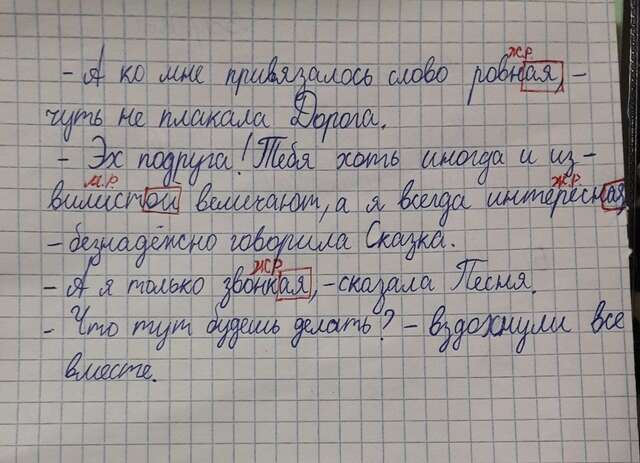 ж.р.
- А ко мне привязалось слово ровная, -
чуть не плакала Дорога.
- Эх подруга! Тебя хоть иногда и из-
м.р. ж.р.
вилистой величают, а я всегда интересная,
- безнадёжно говорила Сказка.
ж.р.
- А я только звонкая, - сказала Песня.
- Что тут будешь делать? - вздохнули все
вместе.